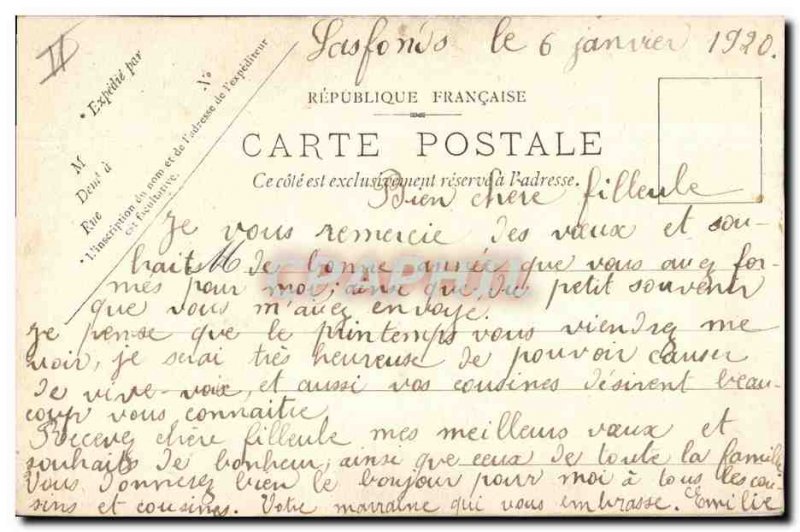 II
Lasfonds le 6 janvier 1920.
Expédié par
M
Demt à
Rue
No
L'inscription du nom et de l'adresse de l'expéditeur
est facultative.
RÉPUBLIQUE FRANÇAISE
CARTE POSTALE
Ce côté est exclusivement réservé à l'adresse.
Bien chère filleule
Je vous remercie des vœux et sou-
hait M de bonne année que vous avez for-
més pour moi; ainsi que du petit souvenir
que vous m'avez envoyé.
Je pense que le printemps vous viendrez me
voir, je serai très heureuse de pouvoir causer
de vive-voix, et aussi vos cousines désirent beau-
coup vous connaitre
Recevez chère filleule mes meilleurs vœux et
souhaits de bonheur, ainsi que ceux de toute la famille
Vous donnerez bien le bonjour pour moi à tous les cou-
sins et cousines. Votre marraine qui vous embrasse. Emilie